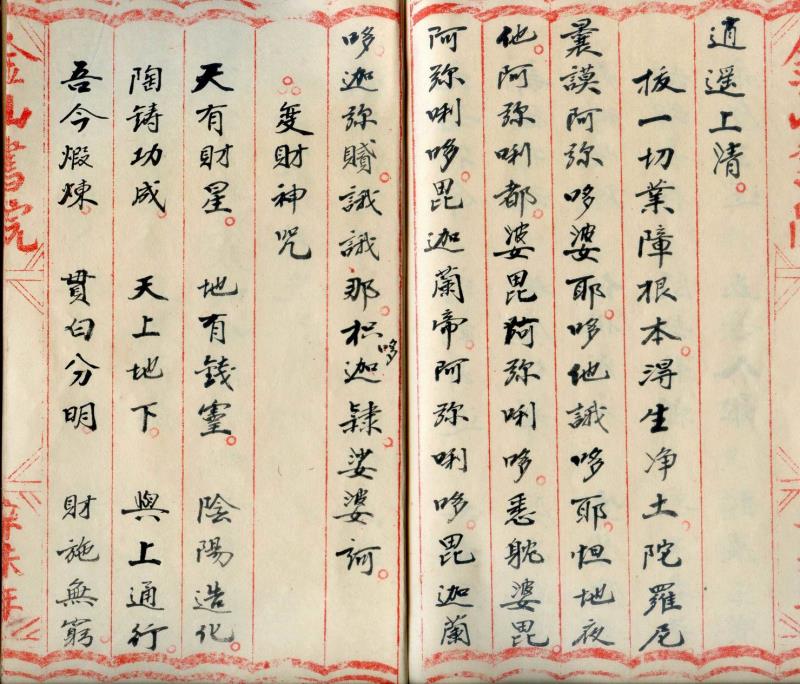 逍遥上清。
拔一切業障根本淂生净土陀羅尼
曩謨阿弥哆婆耶。哆他誐哆耶。怛地夜
他。阿弥唎都。婆毘阿弥唎哆。悉躭婆毘。
阿弥唎哆。毘迦蘭帝。阿弥唎哆。毘迦蘭
哆迦弥膩誐誐那。枳哆迦隸。娑婆訶。
。変財神咒
天有財星。地有錢靈。陰陽造化。
陶铸功成。天上地下。與上通行
吾今煆煉。貫白分明。財施無窮。
金山書院